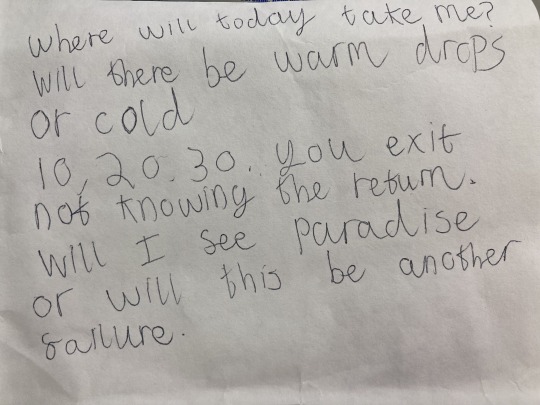 where will today take me?
will there be warm drops
or cold
10, 20. 30. you exit
not knowing the return.
will I see paradise
or will this be another
failure.